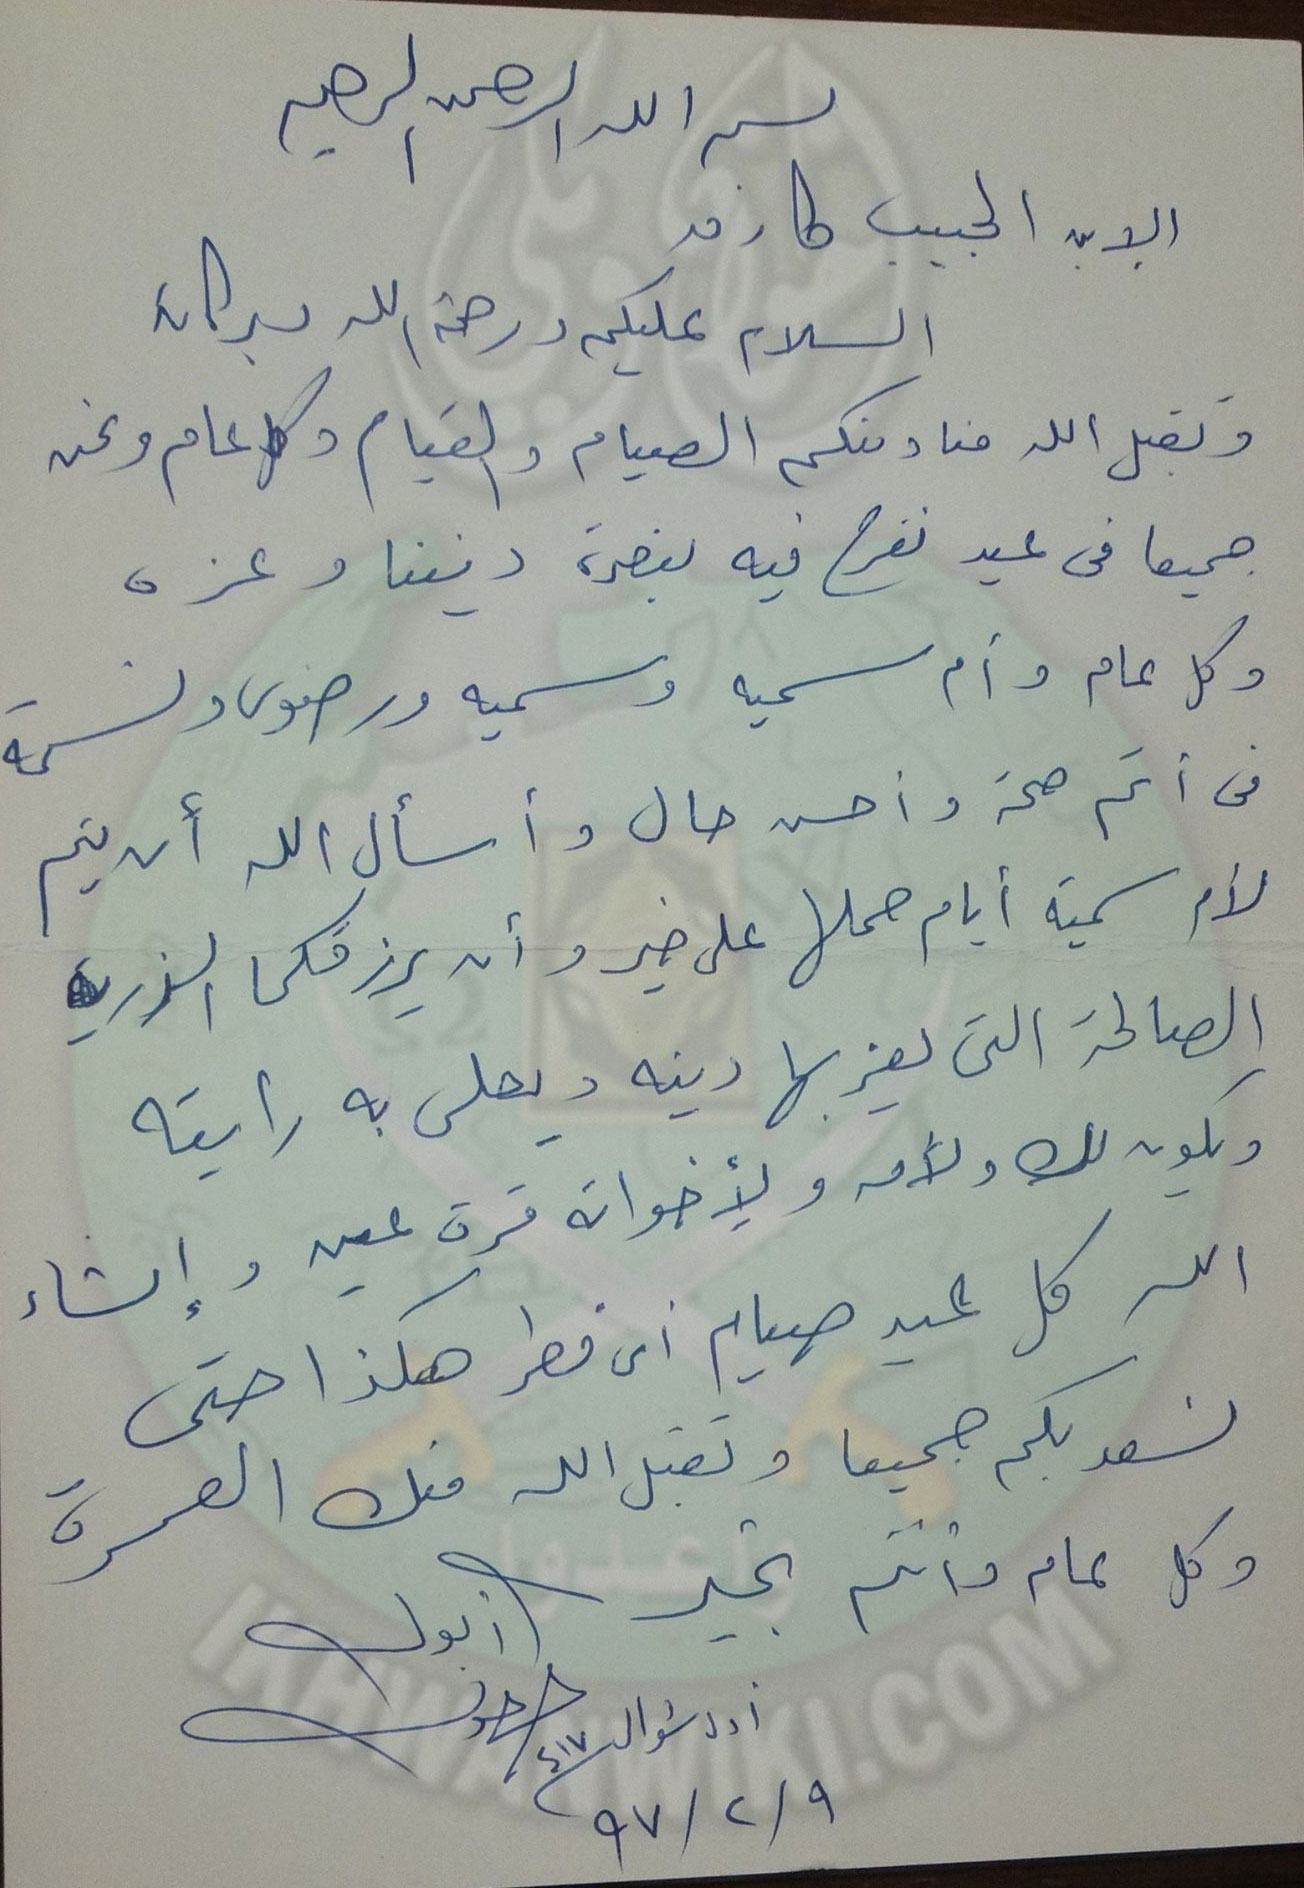 بسم الله الرحمن الرحيم
الابن الحبيب حازم
السلام عليكم ورحمة الله وبركاته
وتقبل الله منا ومنكم الصيام والقيام وكل عام ونحن
جميعا فى عيد نفرح فيه بنصرة ديننا وعزه
وكل عام وأم سميه وسميه ورضوى ونسمة
فى أتم صحة وأحسن حال وأسأل الله أن يتم
لأم سمية أيام حملها على خير وأن يرزقكما الذريه
الصالحة التى يعز بها دينه ويعلى به رايته
ويكون لك ولأمه ولأخواته قرة عين وإنشاء
الله كل عيد صيام أى فطر هكذا حتى
نسعد بكم جميعا وتقبل الله منك العمرة
وكل عام وأنتم بخير
أبوك
أول شوال ٤١٧
٩٧/٢/٩
إخوان ويكي
وأعدوا
IKHWANWIKI.COM